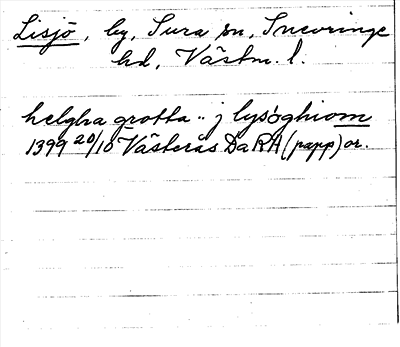 Lisjö, by, Sura sn, Snevringe
hd, Västm. l.
helgha grotta .. j lysöghiom
1399 20/10 Västerås DaRA (papp) or.